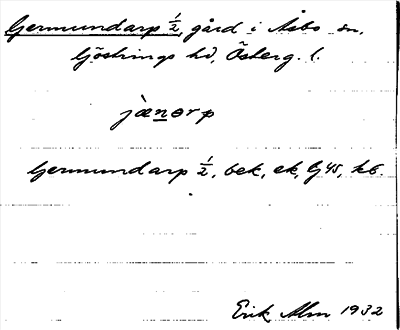 Germundarp ½, gård i Åsbo sn,
Göstrings hd, Österg. l.
jànɘrp
Germundarp ½, bek, ek, G 45, kb.
Erik Alm 1932